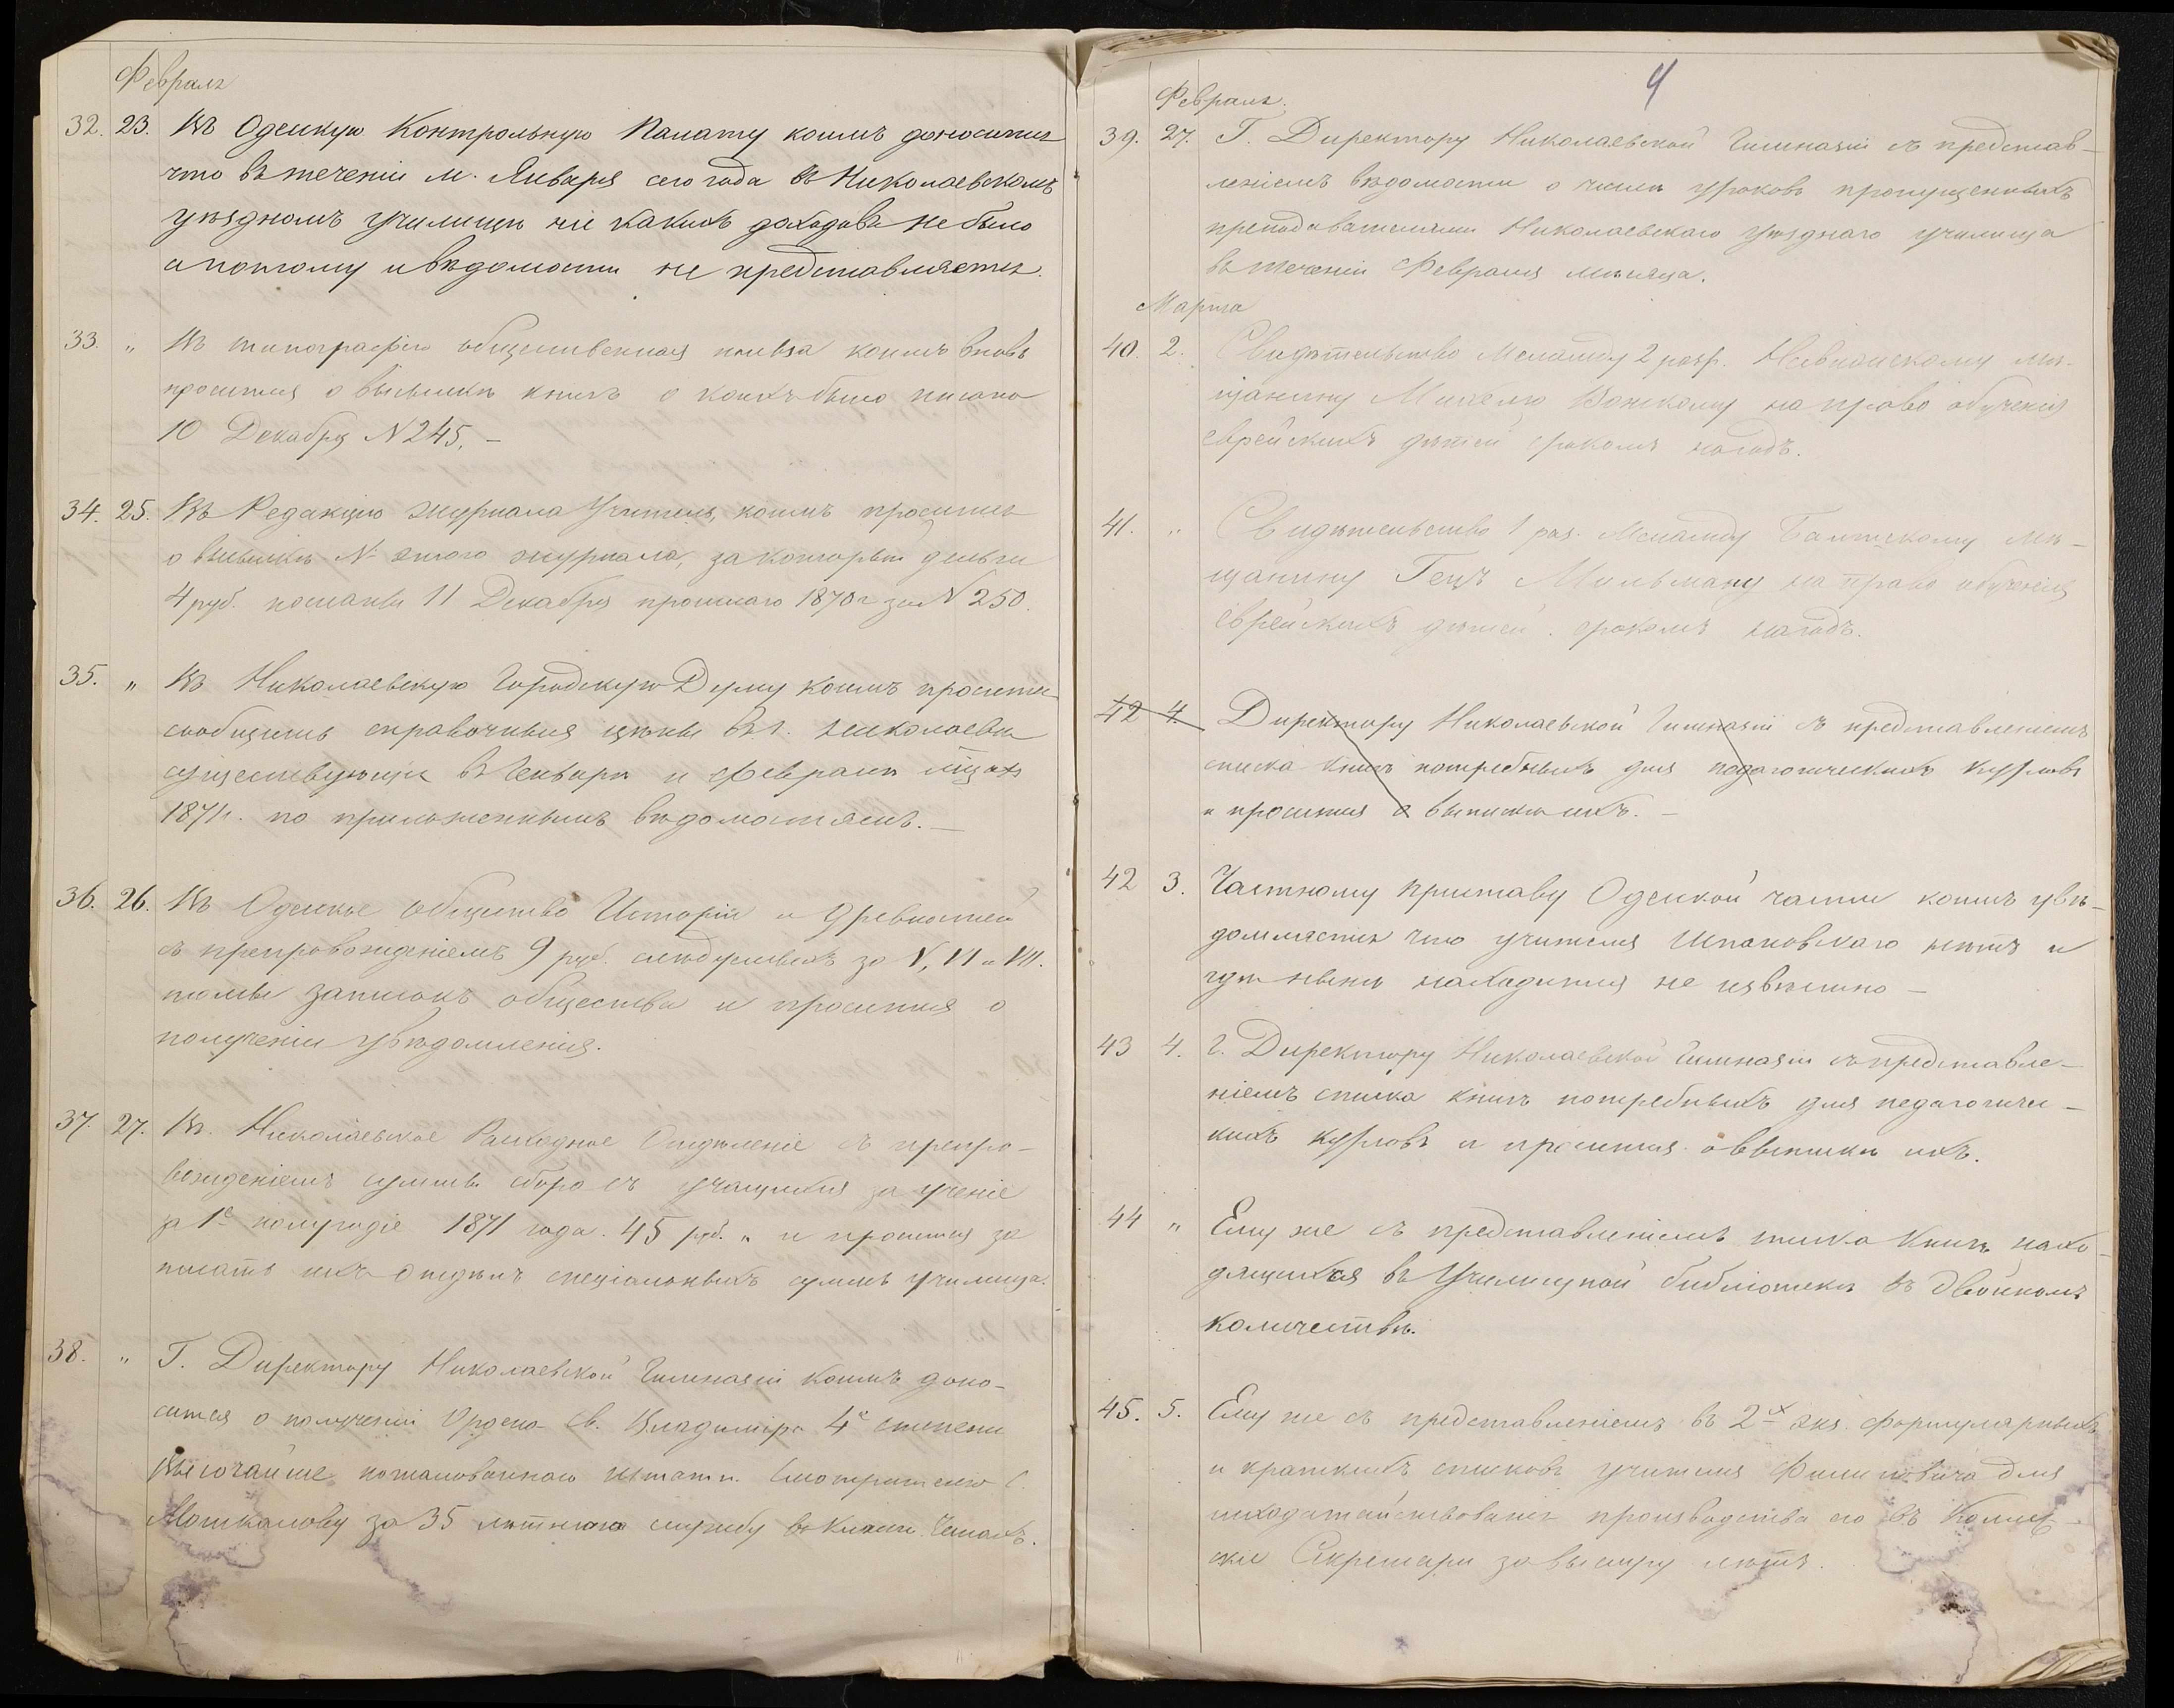 Февраль
32. 23. Въ Одескую Контрольную Палату коимъ доносится
что въ теченіи м. Января сего года въ Николаевскомъ
уѣздномъ училищѣ ни какихъ доходовъ не было
а потому и вѣдомости не представляется.
33. „ Въ типографію общественная польза коимъ вновь
просится о высылкѣ книгъ о коихъ было писано
10 Декабря N 245. –
34. 25. Въ Редакцію журнала Учитель, коимъ просится
о высылкѣ № этого журнала, за который деньги
4 руб. посланы 11 Декабря прошлаго 1870 г за N 250.
35. „ Въ Николаевскую Городскую Думу коимъ просится
сообщить справочныя цѣны въ г. Николаевѣ
существующіе въ Генварѣ и Февралѣ мцахъ
1871 г. по приложеннымъ вѣдомостямъ. –
36. 26. Въ Одеское общество Исторіи и древностей
съ препровожденіемъ 9 руб. слѣдуемыхъ за V, VI и VII.
томы записокъ общества и просится о
полученіи увѣдомленія.
37. 27. Въ Николаевское Расходное Отдѣленіе съ препро–
вожденіемъ суммы сбора съ учащихся за ученіе
за 1е полугодіе 1871 года. 45 руб. „ и просится за
писать ихъ въ специальныхъ суммъ училища.
38. „ Г. Директору Николаевской Гимназіи коимъ доно–
сится о полученіи Ордена Св. Владиміра 4й степени
Высочайше пожалованнаго штатн. смотрителю
Мошкалову за 35 лѣтнюю службу въ Класн. Чинахъ.
4
Февраль.
39. 27. Г. Директору Николаевской Гимназіи съ представ–
леніемъ вѣдомости о числѣ уроковъ пропущенныхъ
преподавателями Николаевскаго уѣзднаго училища
въ теченіи Февраля мѣсяца.
Марта
40. 2. Свидѣтельство Меламду 2 разр. мѣ–
щанину на право обученія
еврейскихъ дѣтей срокомъ на годъ.
41. „ Свидѣтельство 1 раз. Меламду Балтскому мѣ–
щанину Гецъ Мильману на право обученія
еврейскихъ дѣтей. срокомъ на годъ.
42 4. Директору Николаевской Гимназіи съ представленіемъ
списка книгъ потребныхъ для педагогическихъ курсовъ
и просится о выпискѣ ихъ. –
42 3. Частному приставу Одеской части коимъ увѣ–
домляется что учителя Шпаковскаго нѣтъ и
гдѣ нынѣ находится не извѣстно –
43 4. Г. Директору Николаевской Гимназіи съ представле–
ніемъ списка книгъ потребныхъ для педагогиче–
кихъ курсовъ и просится о выпискѣ ихъ.
44 „ Ему же съ представленіемъ списка Книгъ нахо–
дящихся въ Училищной библіотекѣ въ двойномъ
количествѣ.
45. 5. Ему же съ представленіемъ въ 2х экз. формулярныхъ
и краткихъ списковъ учителя Филиповича для
исходатайствованія производства его въ Коллеж–
скіе Секретари за выслугу лѣтъ.